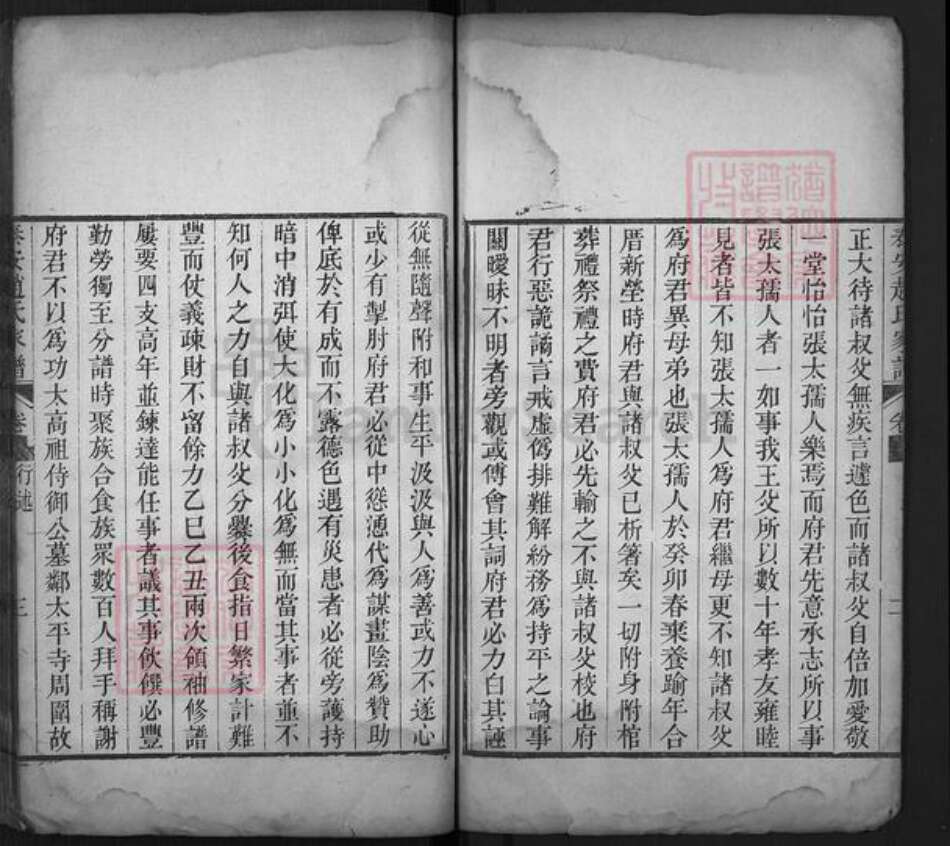 泰安趙氏家譜
卷
二
正大待諸叔父無疾言遽色而諸叔父自倍加愛敬
一堂怡怡張太孺人樂焉而府君先意承志所以事
張太孺人者一如事我王父所以數十年孝友雍睦
見者皆不知張太孺人爲府君繼母更不知諸叔父
爲府君異母弟也張太孺人於癸卯春棄養踰年合
厝新塋時府君與諸叔父已析箸矣一切附身附棺
葬禮祭禮之費府君必先輸之不與諸叔父校也府
君行惡詭譎言戒虛僞排難解紛務爲持平之論事
關曖昧不明者旁觀或傅會其詞府君必力白其誣
從無隨聲附和事生平汲汲與人爲善或力不遂心
或少有掣肘府君必從中慫慂代爲謀畫陰爲贊助
俾底於有成而不露德色遇有災患者必從旁護持
暗中消弭使大化爲小小化爲無而當其事者並不
知何人之力自與諸叔父分爨後食指日繁家計難
豐而仗義疎財不留餘力乙巳乙丑兩次領袖修譜
屢要四支高年並鍊達能任事者議其事飲饌必豐
勤勞獨至分譜時聚族合食族眾數百人拜手稱謝
府君不以爲功太高祖侍御公墓鄰太平寺周圍故
泰安趙氏家譜
卷
行述
三